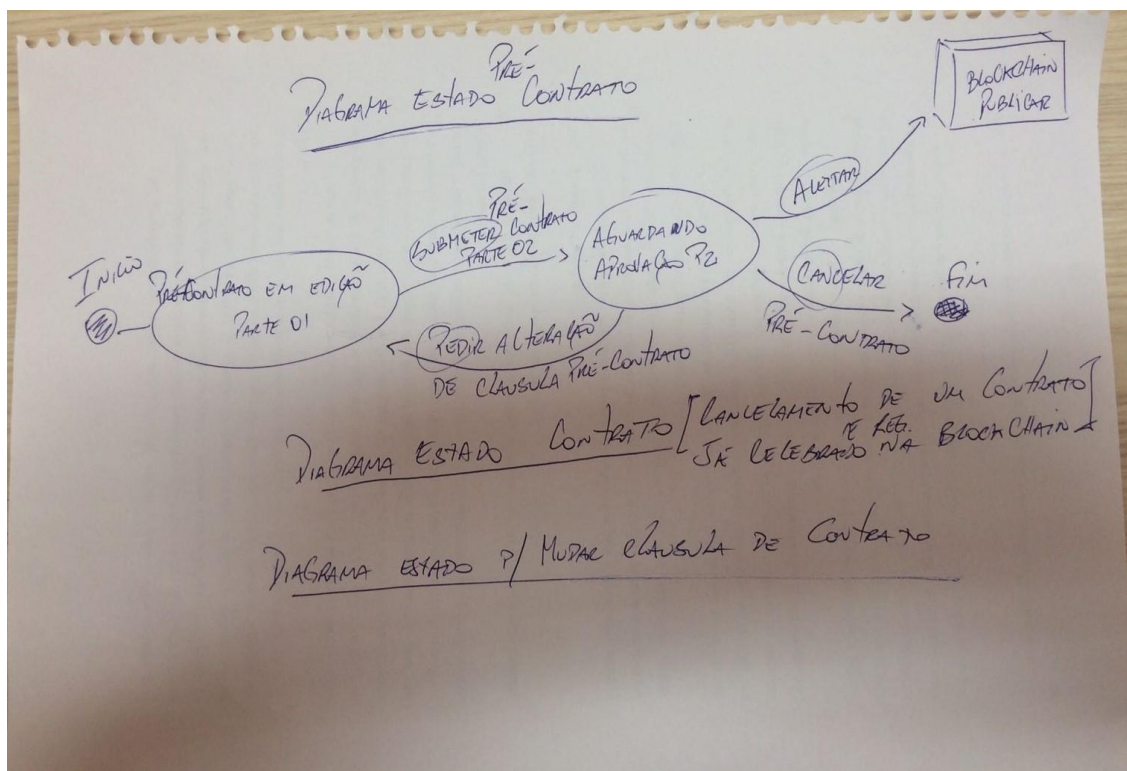 DIAGRAMA ESTADO PRÉ-CONTRATO
BLOCKCHAIN
PUBLICAR
ACEITAR
PRÉ-
SUBMETER CONTRATO
PARTE 02
AGUARDANDO
APROVAÇÃO P2
INICIO
PRÉ-CONTRATO EM EDIÇÃO
PARTE 01
CANCELAR
PRÉ-CONTRATO
FIM
PEDIR ALTERAÇÃO
DE CLAUSULA PRÉ-CONTRATO
DIAGRAMA ESTADO CONTRATO [CANCELAMENTO DE UM CONTRATO
JÁ CELEBRADO E REG. NA BLOCKCHAIN]
DIAGRAMA ESTADO P/ MUDAR CLAUSULA DE CONTRATO